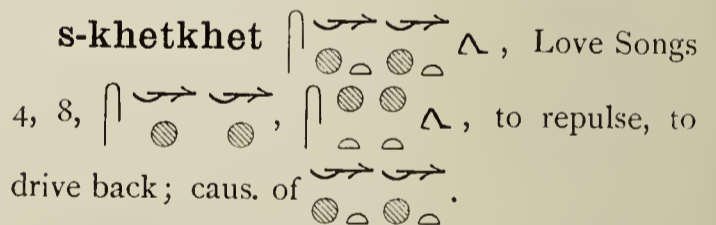 s-khetkhet 𓋴𓆱𓐍𓏏𓆱𓐍𓏏𓂻, Love Songs
4, 8, 𓋴𓆱𓐍𓆱𓐍, 𓋴𓐍𓏏𓐍𓏏𓂻, to repulse, to
drive back; caus. of 𓆱𓐍𓏏𓆱𓐍𓏏.